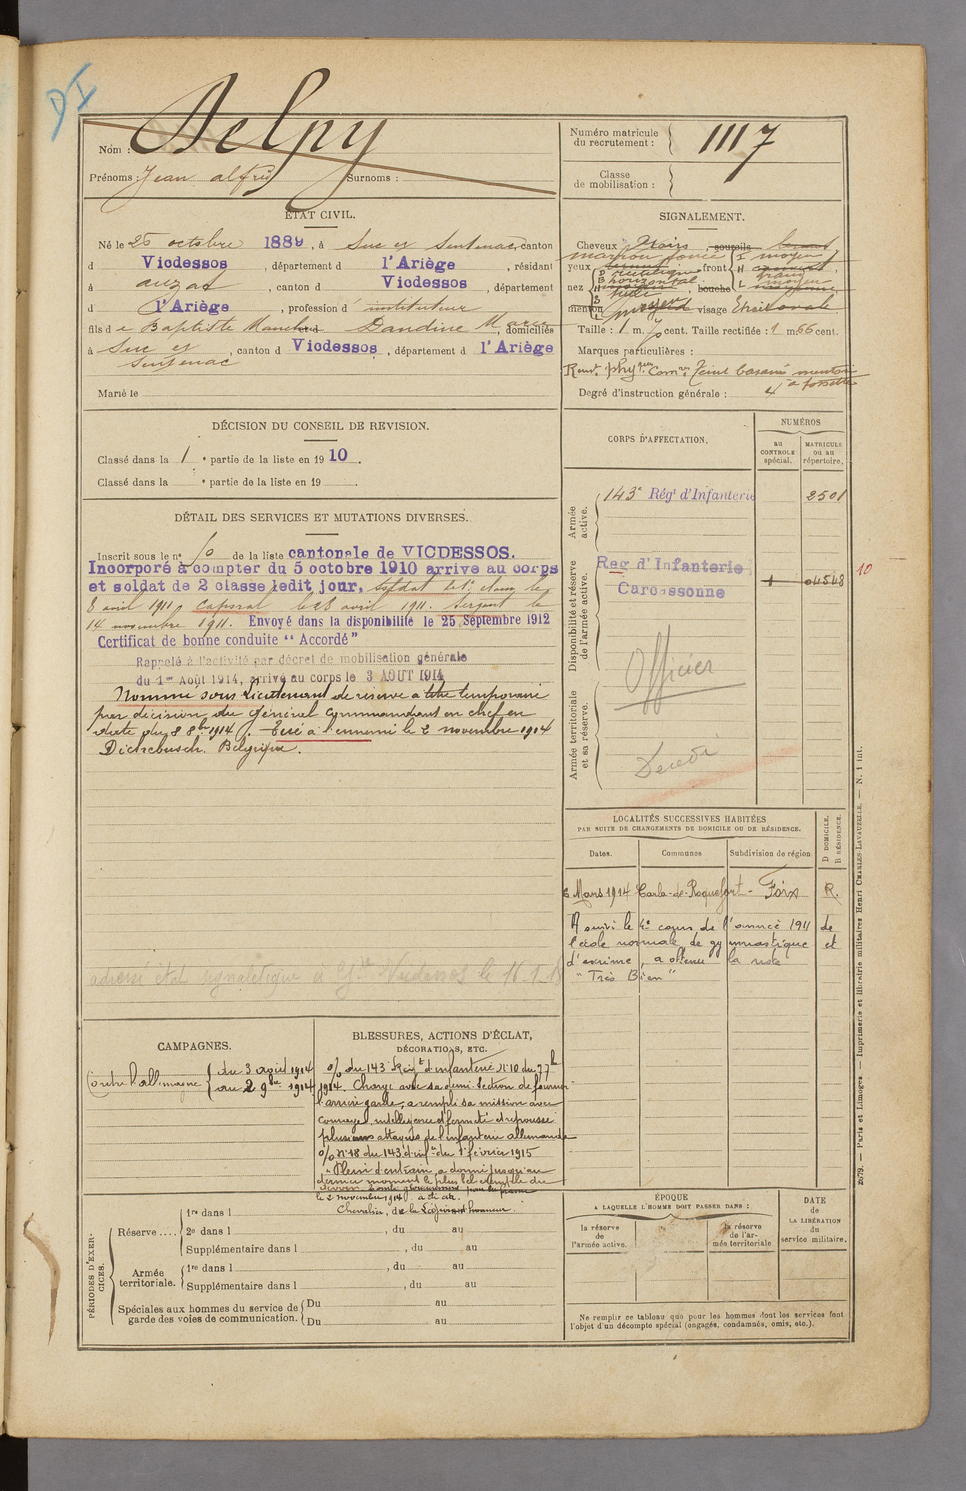 DI
Nom : Delpy
Prénoms : Jean alfred Surnoms :
Numéro matricule
du recrutement : 1117
Classe
de mobilisation :
ÉTAT CIVIL.
Né le 25 octobre 1889, à Suc et Sentenac, canton
d Vicdessos, département d l'Ariège, résidant
à auzat, canton d Vicdessos, département
d l'Ariège, profession d'instituteur
fils de Baptiste Manches et d Dandine Marie, domiciliés
à Suc et Sentenac, canton d Vicdessos, département d l'Ariège
Marié le
SIGNALEMENT.
Cheveux noirs, sourcils
marron foncé I moyen
yeux front H
rectiligne
nez B horizontal bouche L moyenne
menton visage
Taille : 1 m. 70 cent. Taille rectifiée : 1 m. 66 cent.
Marques particulières :
Rens. phyques Comres Teint basané menton
à fossette
Degré d'instruction générale : 4
DÉCISION DU CONSEIL DE REVISION.
Classé dans la 1 e partie de la liste en 1910.
Classé dans la e partie de la liste en 19 .
DÉTAIL DES SERVICES ET MUTATIONS DIVERSES.
Inscrit sous le n° 10 de la liste cantonale de VICDESSOS.
Incorporé à compter du 5 octobre 1910 arrivé au corps
et soldat de 2 classe ledit jour, Soldat de 1e classe le
8 avril 1911, Caporal le 28 avril 1911. Sergent le
14 novembre 1911. Envoyé dans la disponibilité le 25 Septembre 1912
Certificat de bonne conduite "Accordé"
Rappelé à l'activité par décret de mobilisation générale
du 1er Août 1914, arrivé au corps le 3 AOUT 1914
Nommé sous Lieutenant de réserve à titre temporaire
par décision du Général Commandant en chef en
date du 8 8bre 1914. Tué à l'ennemi le 2 novembre 1914
Dickebusch. Belgique.
adressé état signalétique à le 16.1.18
CORPS D'AFFECTATION.
NUMÉROS
AU CONTROLE spécial.
MATRICULE ou au répertoire.
Armée active.
143e Régt d'Infanterie 2501
Disponibilité et réserve de l'armée active.
Reg d'Infanterie
Carcassonne
1 04548 10
Officier
Armée territoriale et sa réserve.
Décédé
LOCALITÉS SUCCESSIVES HABITÉES
PAR SUITE DE CHANGEMENTS DE DOMICILE OU DE RÉSIDENCE.
Dates. Communes Subdivision de région D DOMICILE. R RÉSIDENCE.
6 Mars 1914 Carla-de-Roquefort - Foix R.
A suivi le 4e cours de l'année 1911 de
l'école normale de gymnastique et
d'escrime, a obtenu la note
"Très Bien"
CAMPAGNES.
Contre l'allemagne du 3 août 1914
au 2 9bre 1914
BLESSURES, ACTIONS D'ÉCLAT,
DÉCORATIONS, ETC.
o/o du 143 Regt d'infanterie N° 10 du 7 7b
1914. Chargé avec sa demi-Section de former
l'arrière garde, a rempli sa mission avec
courage, intelligence et fermeté et repoussé
plusieurs attaques de l'infanterie allemande
o/o N° 18 du 143 d'infie du 1er février 1915
"Plein d'entrain, a donné jusqu'au
dernier moment le plus bel exemple du
devoir. Tombé glorieusement pour la France
le 2 novembre 1914 a été cité.
Chevalier, de la Légion d'honneur.
PÉRIODES D'EXERCICES.
Réserve....
1re dans l
2e dans l , du au
Supplémentaire dans l , du au
Armée territoriale.
1re dans l , du au
Supplémentaire dans l , du au
Spéciales aux hommes du service de
garde des voies de communication.
Du au
Du au
ÉPOQUE
A LAQUELLE L'HOMME DOIT PASSER DANS :
la réserve de l'armée active.
la réserve de l'armée territoriale
DATE DE LA LIBÉRATION du service militaire.
Ne remplir ce tableau que pour les hommes dont les services font
l'objet d'un décompte spécial (engagés, condamnés, omis, etc.).
2679. — Paris et Limoges. — Imprimerie et librairie militaires Henri CHARLES-LAVAUZELLE. — N. 1 int.